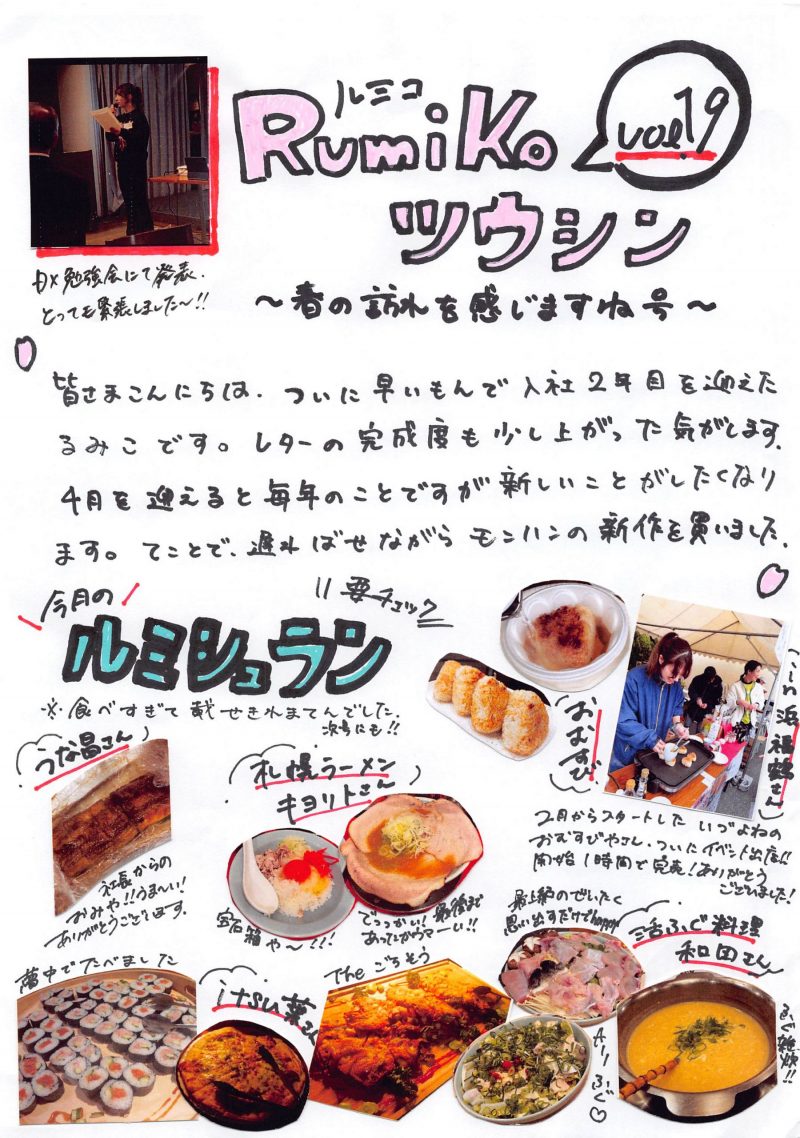 ルミコ
RumiKo
vol.19
ツウシン
～春の訪れを感じますね号～
DX勉強会にて発表.
とっても緊張しました～!!
皆さまこんにちは. ついに早いもんで入社2年目を迎えた
るみこです。レターの完成度も少し上がった気がします.
4月を迎えると毎年のことですが新しいことがしたくなり
ます。てことで、遅ればせながらモンハンの新作を買いました.
今月の
ルミシュラン
要チェック
※食べすぎて載せきれませんでした.
次号にも!!
うな昌さん
社長からの
おみや!!うま～い!!
ありがとうございます.
札幌ラーメン
キヨリトさん
宝石箱や～!!!
でっっかい! 最後まで
あったかウマーい!!
おむすび
in 浜福鶴さん
2月からスタートした いづよねの
おむすびやさん. ついにイベント出店!!
開始1時間で完売!ありがとう
ございました!
夢中でたべました
itsu葉さん
The ごちそう
最上級のぜいたく
思い出すだけでhappy
活ふぐ料理
和田さん
ふぐ♡
ふぐ雑炊!!